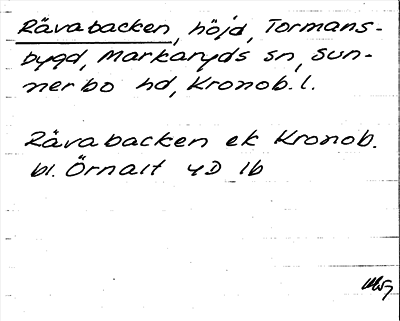 Rävabacken, höjd, Tormans-
bygd, Markaryds sn, Sun-
nerbo hd, Kronob. l.
Rävabacken ek Kronob.
bl. Örnalt 4D 1b